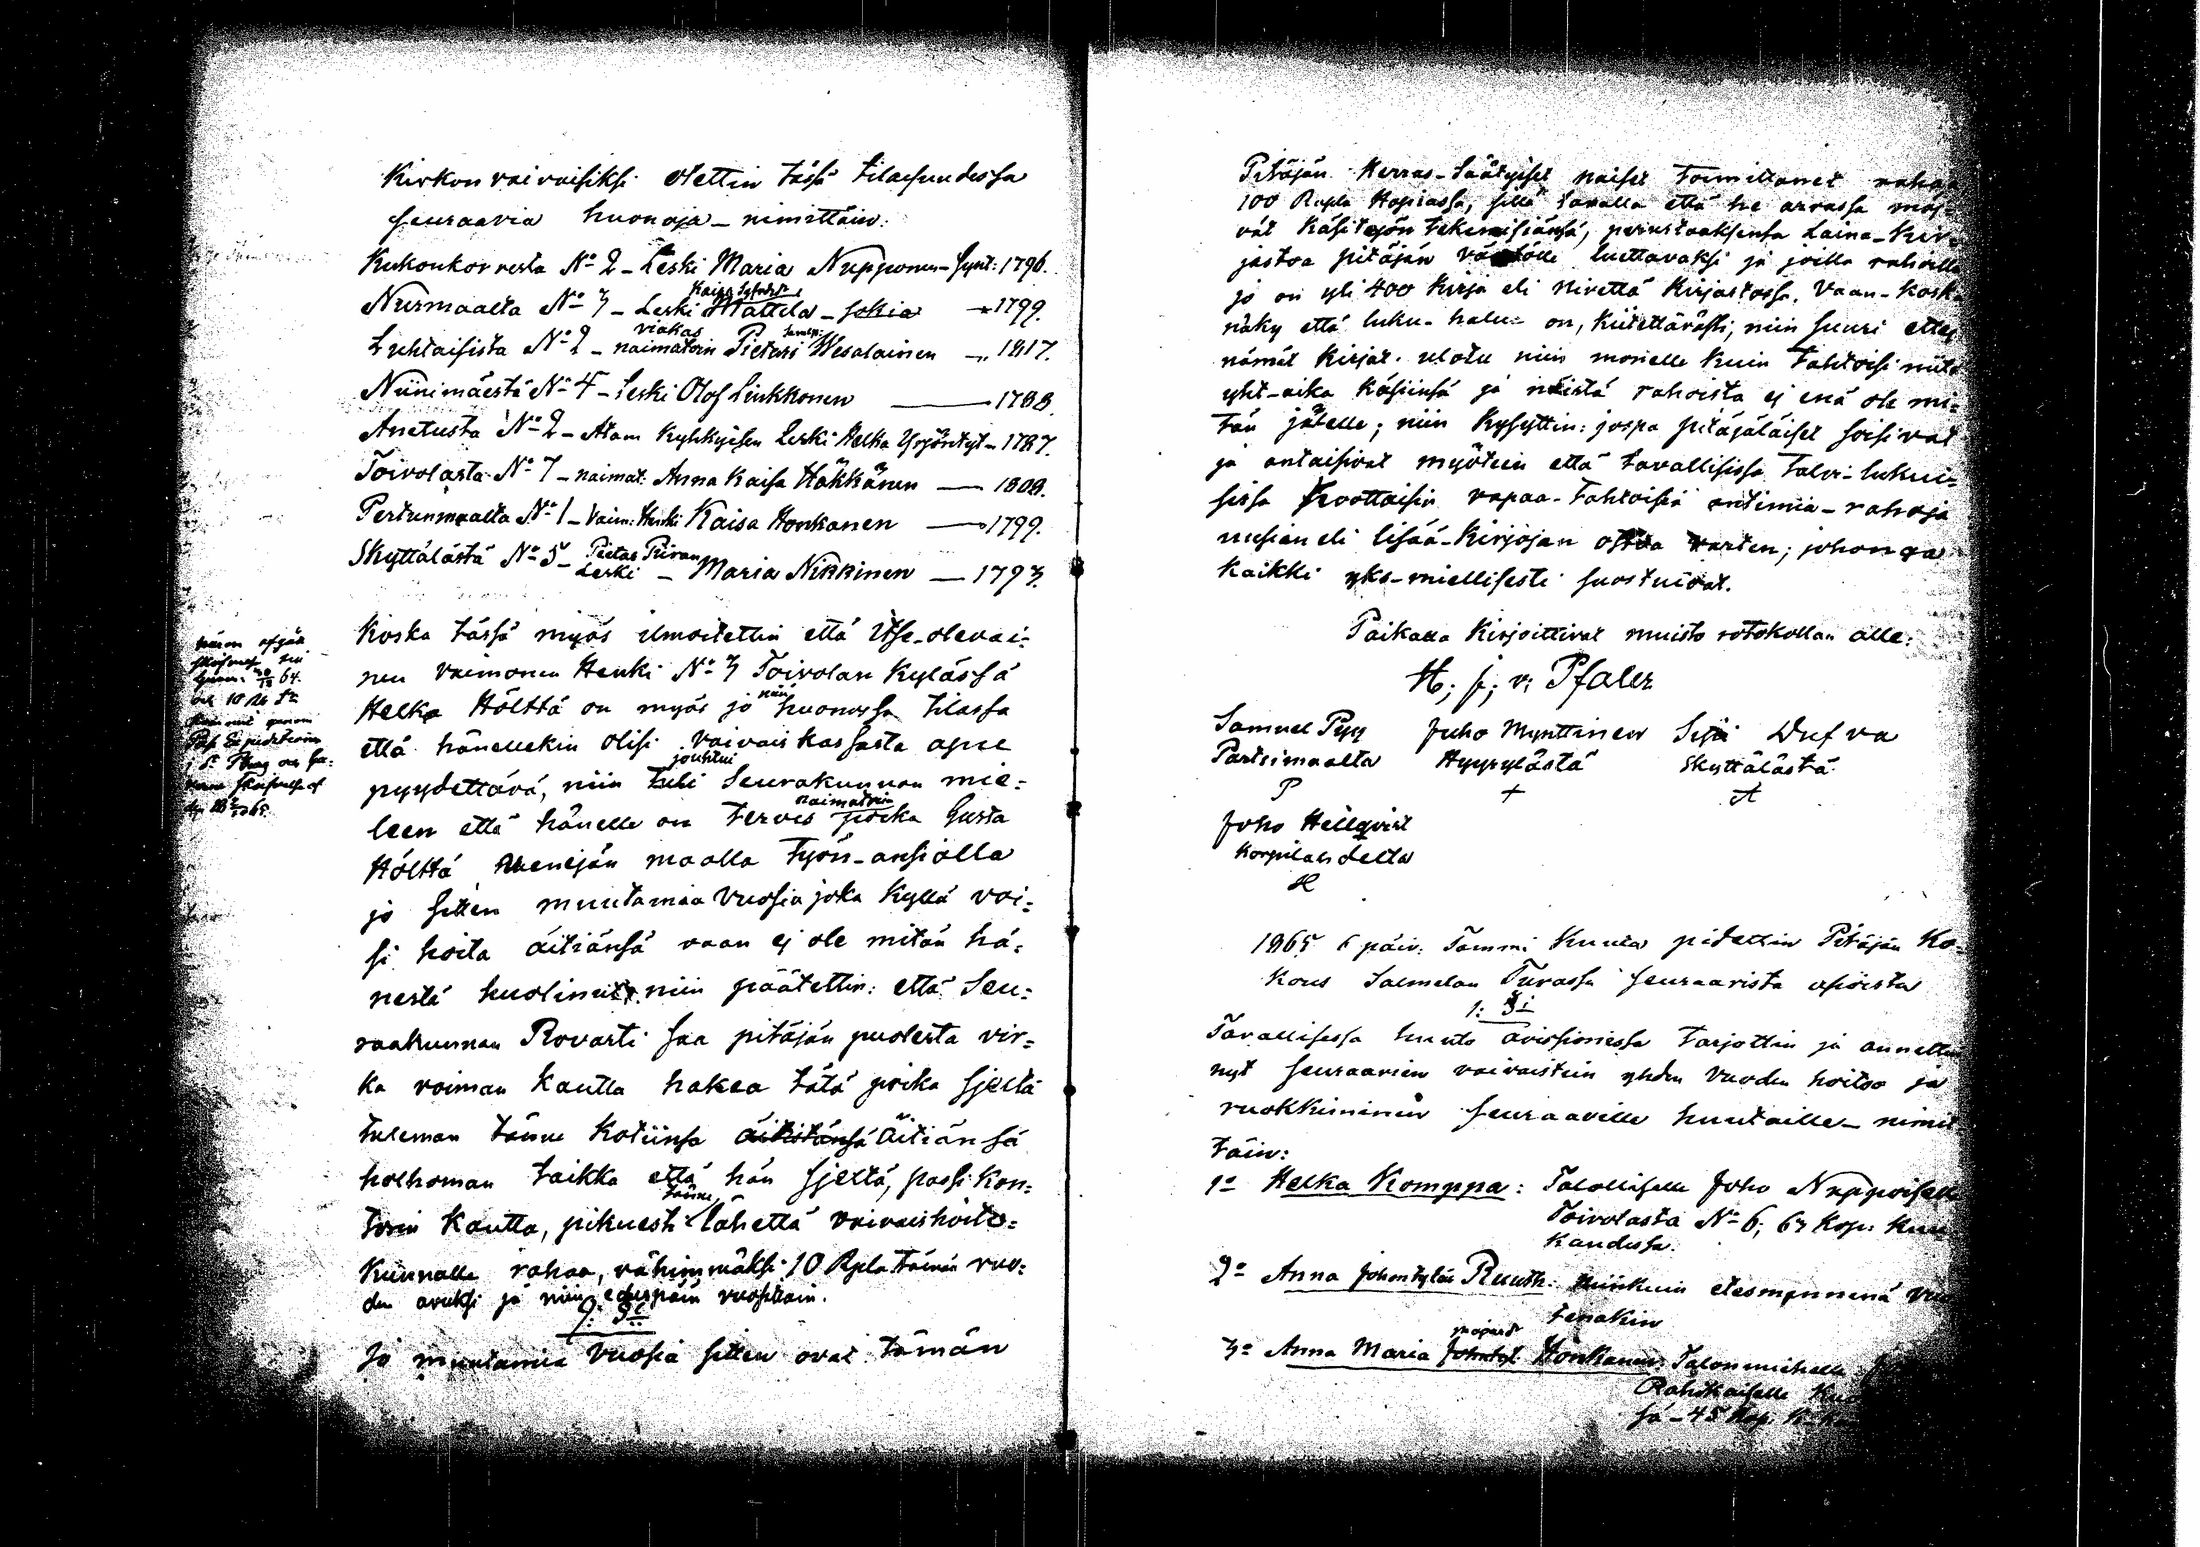 Kirkon vaivaisiksi otettin tässä tilaisuudessa
seuraavia huonoja - nimittäin:
Kukonkorvesta No 2 - Leski Maria Nupponen - Synt: 1796.
Nurmaalta No 3 - Leski Mattila - sokia - 1799.
Luhtaisista No 2 - naimatoin Pietari Wesalainen - 1817.
viakas
Niinimäestä No 4 - Leski Olof Linkkonen - 1788.
Anetusta No 2 - Atam Kyhkyisen Leski Helka Yrjöntyt - 1787.
Toivolasta No 7 - naimat: Anna Kaisa Häkkänen - 1808.
Pertunmaalta No 1 - Vaim: Henki Kaisa Honkanen - 1799.
Skyttälästä No 5 - Leski - Maria Nikkinen - 1793.
Koska tässä myös ilmoitettin että Itse-olevai-
nen vaimonen Henki No 3 Toivolan Kylässä
Helka Hölttä on myös jo niin huonossa tilassa
että hänellekin olisi vaivaiskassasta apue
pyydettävä, niin tuli Seurakunnan mie-
johtui
leen että hänelle on terves naimatoin poika Gusta
Hölttä Wenejän maalla työn-ansiolla
jo sitten muutamaa vuosia joka kyllä voi-
si hoita äitiänsä vaan ej ole mitän hä-
nestä huolinut, niin päätettin: että Seu-
rakunnan Rovasti saa pitäjän puolesta vir-
ka voiman kautta hakea tätä poika sjeltä
tuleman tänne kotiinsa äitiänsä
holhoman taikka että hän sjeltä, passi kon-
torin kautta, pikuesti tänne lähettä vaivaishoito-
kunnalle rahaa, vähimmäksi 10 Rpla tämän vuo-
den avuksi ja niin edespäin vuosittain.
7: §:
Jo muutamia vuosia sitten ovat tämän
Pitäjän Herras-Säätyiset naiset toimittanet rahaa
100 Rupla Hopiassa, sillä tavalla että he arvassa möi-
vät käsitöjön tekemisiänsä, perustaaksensa Laina-Kir-
jastoa pitäjän luettavaksi ja joilla raholla
jo on yli 400 Kirja eli nivettä Kirjastossa. Vaan-koska
näky että luku-halu on, kiitettävästi, niin suuri ettej
nämät Kirjat ulotu niin monelle kuin tahtoisi niitä
yht-aika käsiinsä ja näistä rahoista ej enä ole mi-
tän jätelle; niin kysyttin: jospa pitäjäläiset soisivat
ja antaisivat myötein että tavallisissa talvi-lukui-
sissa koottaisin vapaa-tahtoisia antimia-rahoja
uusian eli lisää-Kirjojan ostoa varten; johonga
kaikki yks-miellisesti suostuivat.
Paikalla Kirjoittivat muisto rotokollan alle:
H; f; v; Pfaler
Samuel Pyy Juho Mynttinen Dufva
Partsimaalta Hyyrylästä Skyttälästä
P + A
Joho Hellqvist
Korpilahdelta
H
1865 6 päiv: Tammi Kuuta pidettin Pitäjän Ko-
kous Salmelan Tuvassa seuraavista asioista
1: §:
Tavallisessa huuto avissionissa tarjottin ja annettin
nyt seuraavien vaivaistein yhden vuoden hoitoo ja
ruokkiminen seuraaville huutaille - nimit
täin:
1o Helka Komppa: Talolliselle Joho Nuppoiselle
Toivolasta No 6; 63 Kop: Kuu
kaudessa.
2o Anna Johontytär Ruuth: niinkuin etesmennenä vuo
tenakin
3o Anna Maria Honkanen: Talonmiehelle
Rahikaiselle
sä - 45 Kop: